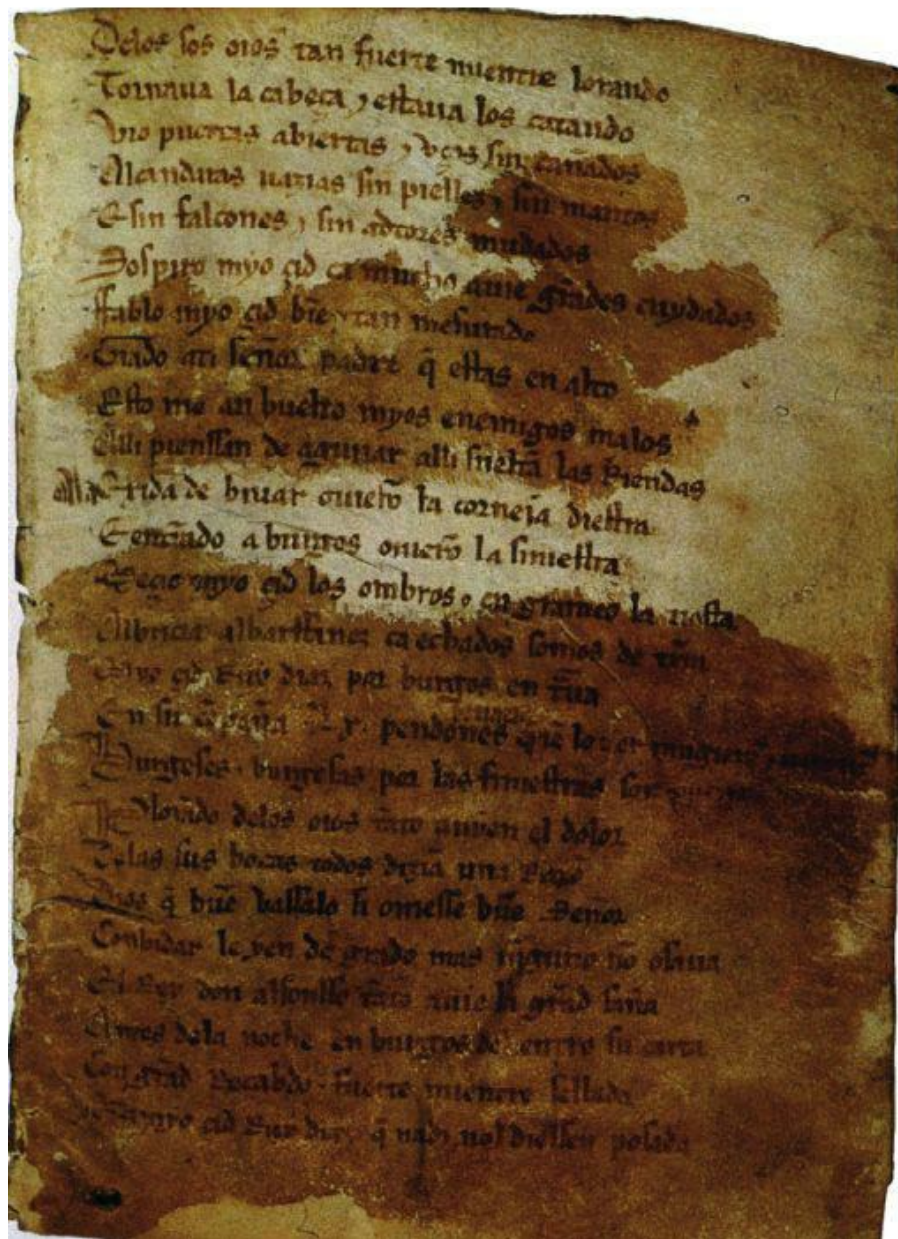 Delos sos oios tan fuerte mientre lorando
Tornaua la cabeça ⁊ estaua los catando
Vio puertas abiertas ⁊ vços sin cañados
Alcandaras uazias sin pielles ⁊ sin mantos
E sin falcones ⁊ sin adtores mudados
Sospiro myo çid ca mucho auie grãdes cuydados
Ffablo myo çid biẽ ⁊ tan mesurado
Grado ati señor padre q̃ estas en alto
Esto me an buelto myos enemigos malos
Alli pienssan de aguiiar alli sueltã las Riendas
Ala Exida de biuar ouierõ la corneia diestra
E entrãdo a burgos ouierõ la siniestra
Meçio myo çid los ombros ⁊ en grameo la tiesta
Albricia albarffanez ca echados somos de tr̃ra
Myo çid Ruy diaz por burgos en traua
En su cõpaña Lx pendones
Burgeses ⁊ burgesas por las finiestras son
Plorãdo delos oios tãto auyen el dolor
Delas sus bocas todos dizian una Razõ
Dios q̃ buẽ vassalo si ouiesse buẽ Señor
Conbidar le yen de grado mas ninguno nõ osaua
El Rey don alfonsso tãto auie la grãd saña
Antes dela noche en burgos del entro su carta
Con grãd Recabdo ⁊ fuerte mientre sellada
Que a myo çid Ruy diaz q̃ nadi nol diessen posada